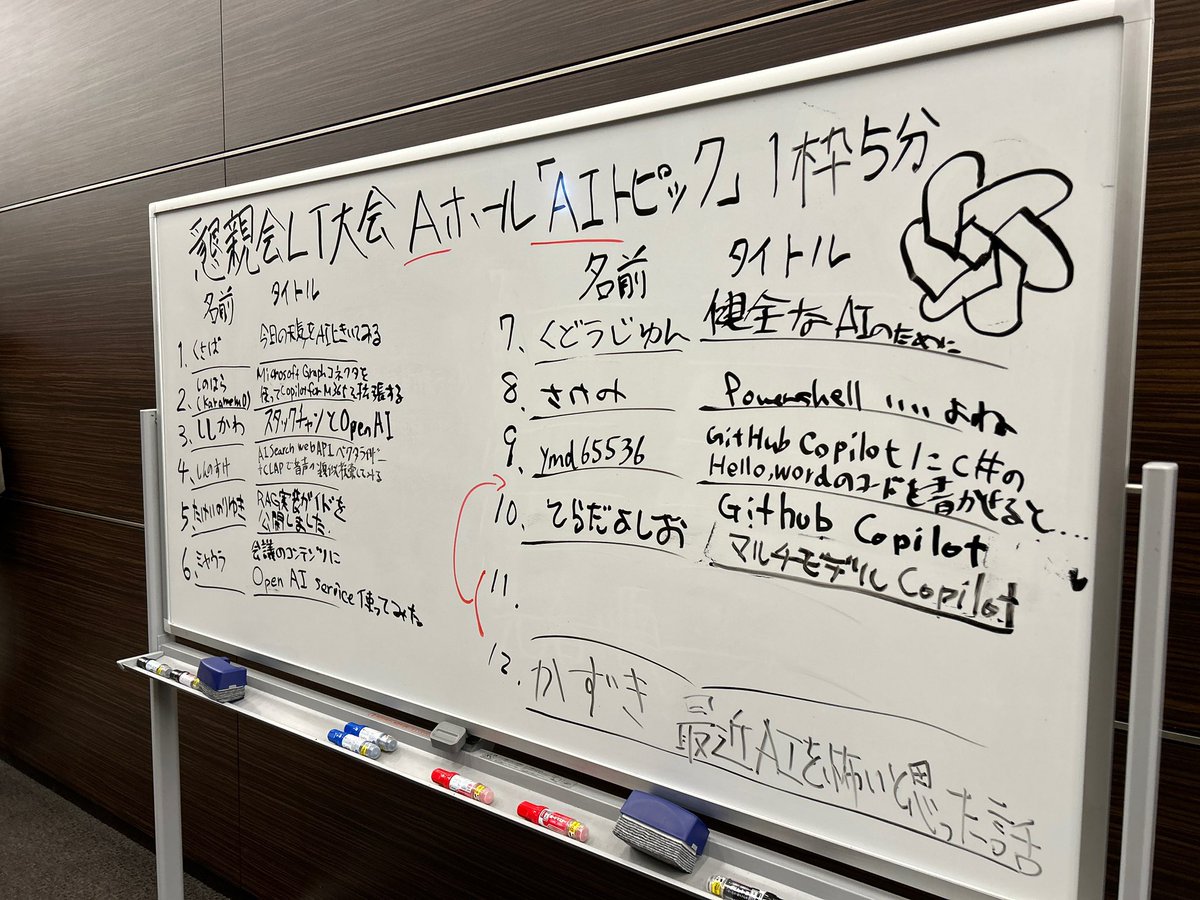 懇親会LT大会 Aホール「AIトピック」1枠5分
名前 タイトル
1. くさば 今日の天気をAIにきいてみる
2. しのはら (Karamem0) Microsoft Graphコネクタを
使ってCopilot for M365を拡張する
3. ししかわ スタックチャンとOpenAI
4. しんのすけ AI Search web API ベクタライザー
+CLAPで音声の 検索してみる
5. たけいのりゆき RAG実装ガイドを
公開しました
6. ミヤウラ 会議のコンテンツに
Open AI service 使ってみた
名前 タイトル
7. くどうじゅん 健全なAIのために
8. ささみ Powershell ‥‥よね
9. ymd65536 GitHub Copilotに C#の
Hello,wordのコードを書かせると…
10. てらだよしお Github Copilot
マルチモデル Copilot
11.
12. かずき 最近AIを怖いと思った話